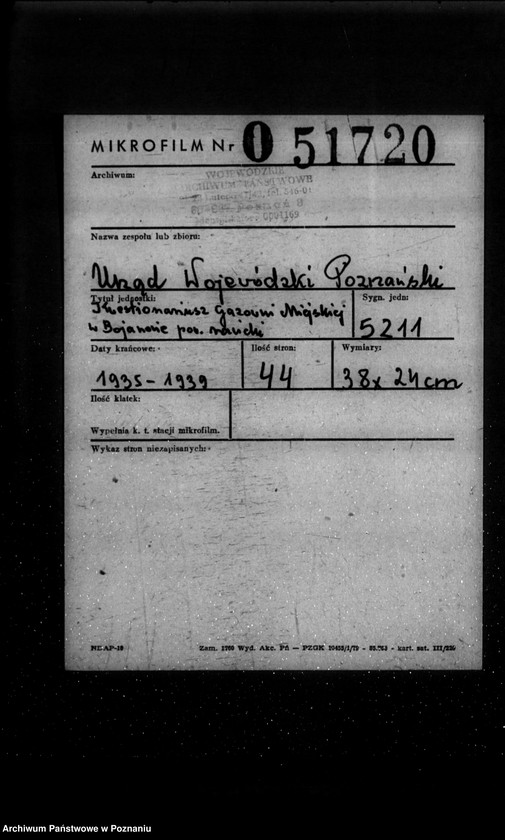 MIKROFILM Nr 0 51720
Archiwum:
WOJEWÓDZKIE
ARCHIWUM PAŃSTWOWE
Nazwa zespołu lub zbioru:
Urząd Wojewódzki Poznański
Tytuł jednostki: Sygn. jedn:
Kwestionariusz Gazowni Miejskiej
w Bojanowie pow. rawicki 5211
Daty krańcowe: Ilość stron: Wymiary:
1935-1939 44 38x24cm
Ilość klatek:
Wypełnia k. t. stacji mikrofilm.
Wykaz stron niezapisanych:
Zam. Wyd. Akc. Pń — PZGK
Archiwum Państwowe w Poznaniu